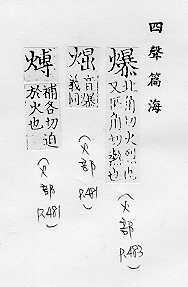 四聲篇海
爆 北角切火烈也
又匹角切𤑔也
(火部
P.483)
𤈷 音爆
義同
(火部
P.481)
煿 補各切迫
於火也
(火部
P.481)